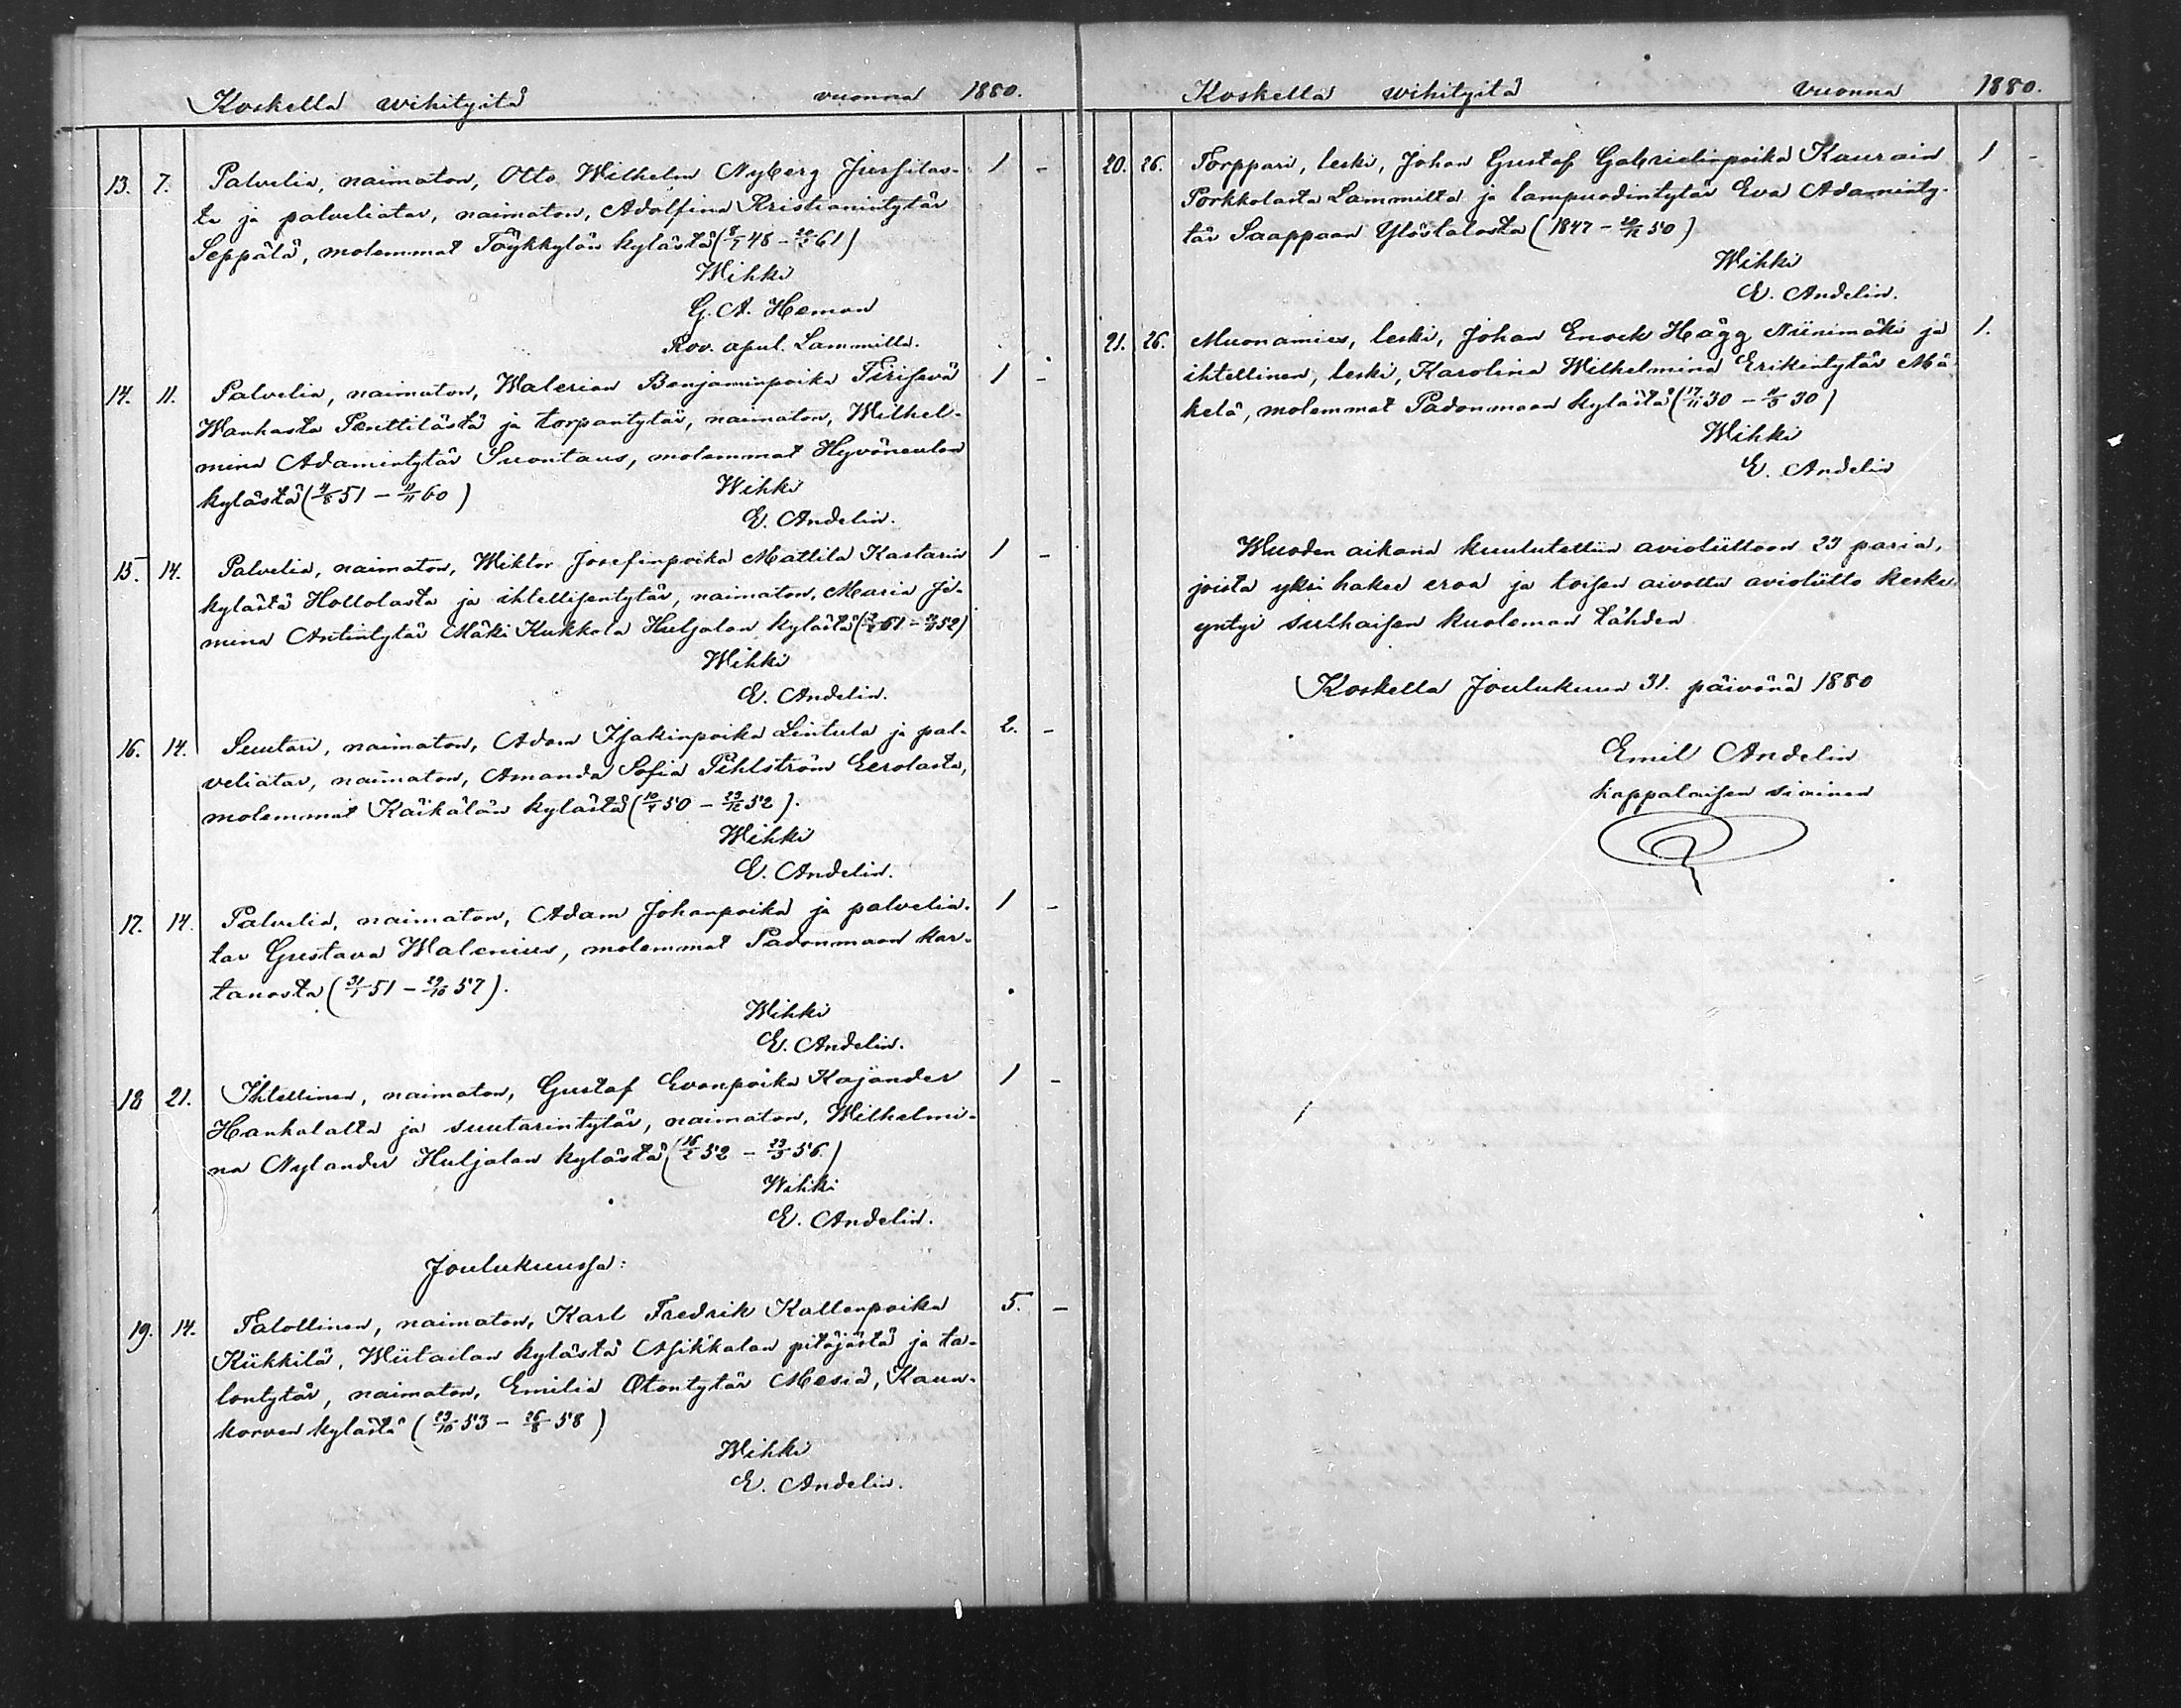 Koskella wihityitä vuonna 1880.
13. 7. Palvelia, naimaton, Otto Wilhelm Nyberg Jussilas- 1 -
ta ja palveliatar, naimaton, Adolfina Kristianintytär
Seppälä, molemmat Töykkylän kylästä
Wihki
G. A. Heman
Rov. apul. Lammilla.
14. 11. Palvelia, naimaton, Walerian Benjaminpoika Tirisevä 1 -
Wanhasta Penttilästä ja torpantytär, naimaton, Wilhel-
mina Adamintytär Suontaus, molemmat Hyvöneulon
kylästä (4/8 51 - 11/11 60)
Wihki
E. Andelin.
15. 14. Palvelia, naimaton, Wiktor Josefinpoika Mattila Kastarin 1 -
kylästä Hollolasta ja ihtellisentytär, naimaton, Maria Je-
mina Antintytär Mäki Kukkola Huljalan kylästä
Wihki
E. Andelin.
16. 14. Suutari, naimaton, Adam Isakinpoika Lintula ja pal- 2. -
veliatar, naimaton, Amanda Sofia Pihlström Eerolasta,
molemmat Käikälän kylästä (10/4 50 - 23/12 52).
Wihki
E. Andelin.
17. 14. Palvelia, naimaton, Adam Johanpoika ja palvelia- 1 -
tar Gustava Walenius, molemmat Padonmaan kar-
tanosta (31/1 51 - 29/10 57).
Wihki
E. Andelin.
18 21. Ihtellinen, naimaton, Gustaf Evanpoika Kajander 1 -
Hankalalta ja suutarintytär, naimaton, Wilhelmi-
na Nylander Huljalan kylästä (16/2 52 - 23/3 56)
Wihki
E. Andelin.
Joulukuussa:
19. 14. Talollinen, naimaton, Karl Fredrik Kallenpoika 5. -
Kiikkilä, Wiitailan kylästä Asikkalan pitäjästä ja ta-
lontytär, naimaton, Emilia Otontytär Mesiä, Kaun-
korven kylästä (23/10 53 - 26/8 58)
Wihki
E. Andelin.
Koskella wihityitä vuonna 1880.
20. 26. Torppari, leski, Johan Gustaf Gabrielinpoika Kaurain 1 -
Porkkolasta Lammilla ja lampuodintytär Eva Adaminty-
tär Saappaan Ylöstalosta (1847 - 50)
Wihki
E. Andelin.
21. 26. Muonamies, leski, Johan Enock Hägg Niinimäki ja 1.
ihtellinen, leski, Karolina Wilhelmina Erikintytär Mä-
kelä, molemmat Padonmaan kylästä (17/11 30 - 30)
Wihki
E. Andelin
Wuoden aikana kuulutettiin avioliittoon 23 paria,
joista yksi hakee eroa ja toisen aivottu avioliitto keske-
yntyi sulhaisen kuoleman tähden
Koskella Joulukuun 31. päivänä 1880
Emil Andelin
kappalaisen siainen